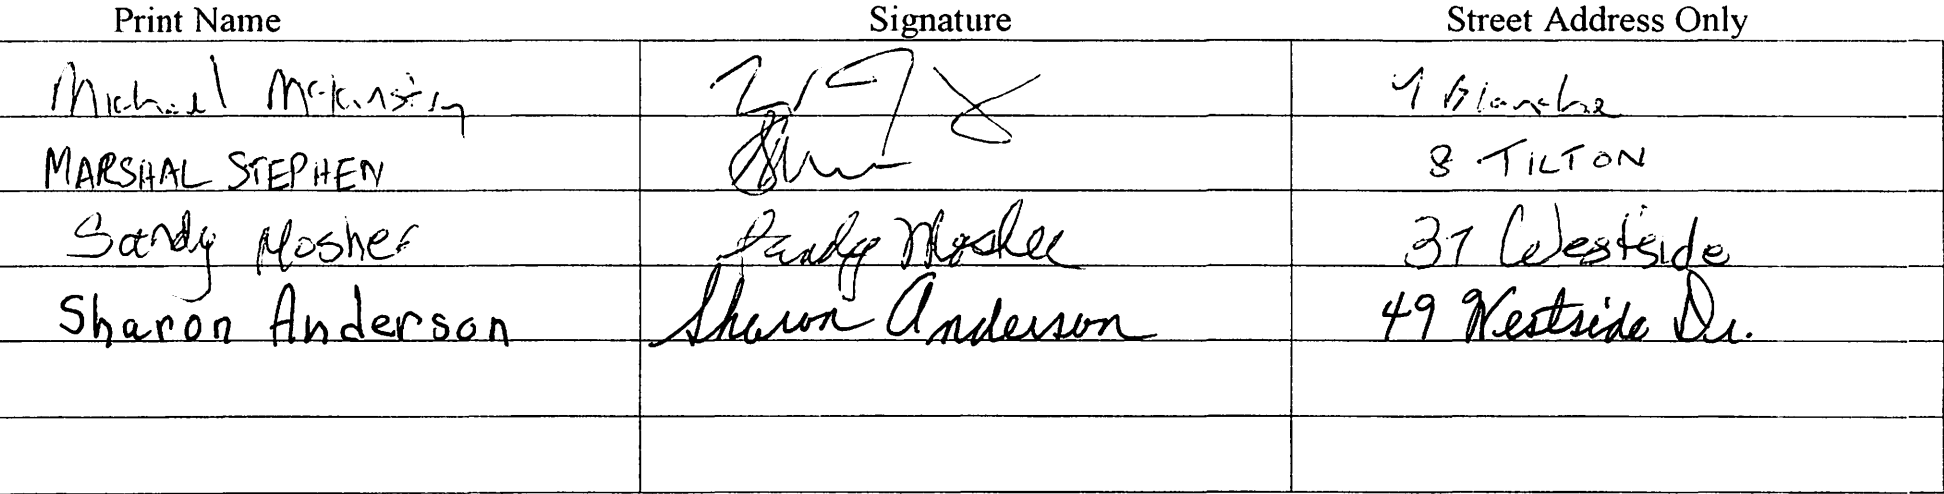 Print Name Signature Street Address Only
Michael McKinstry Blanche
MARSHAL STEPHEN 8 TILTON
Sandy Mosher Sandy Mosher 37 Westside
Sharon Anderson Sharon Anderson 49 Westside Dr.